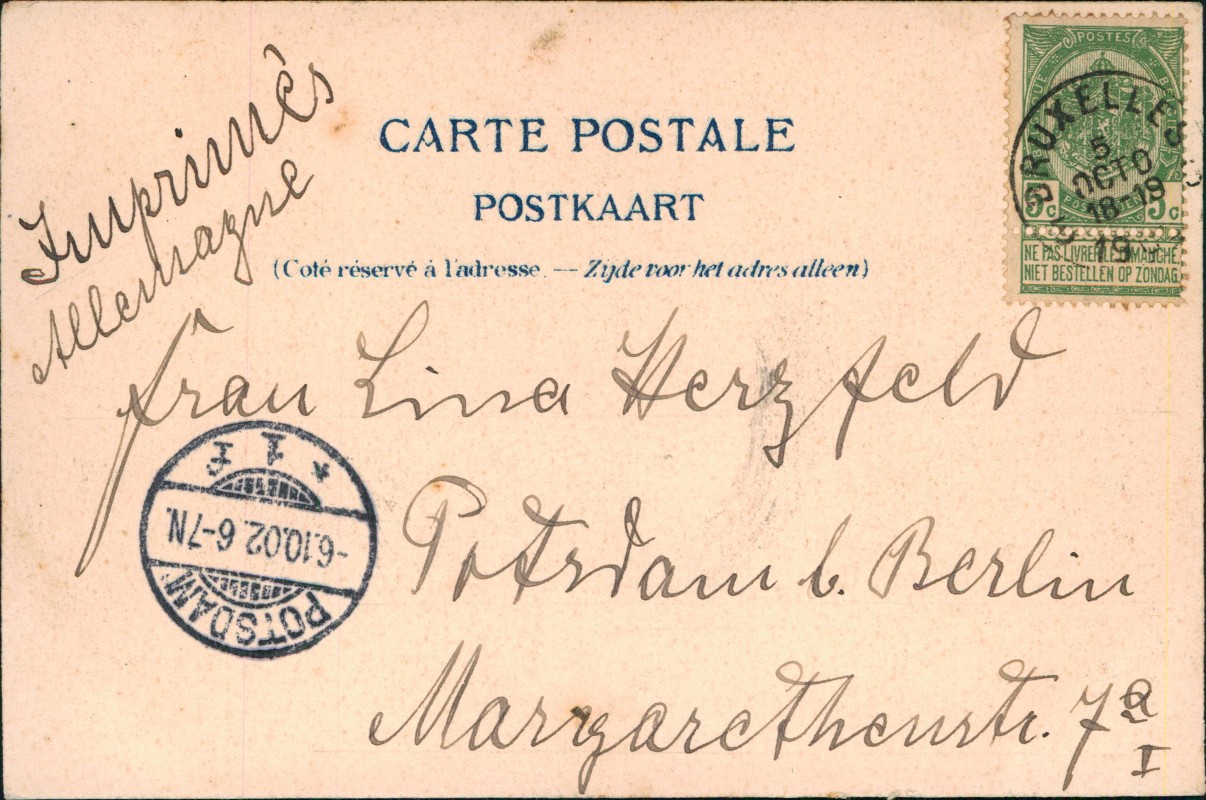 Imprimés
Allemagne
CARTE POSTALE
POSTKAART
(Coté réservé à l'adresse. — Zijde voor het adres alleen)
POSTES
5c 5c
NE PAS LIVRER LE DIMANCHE
NIET BESTELLEN OP ZONDAG
BRUXELLES
5
OCTO
18-19
19
Frau Lina Herzfeld
Potsdam b. Berlin
Margarethenstr. 7a
I
POTSDAM
-6.10.02.6-7N.
* 1